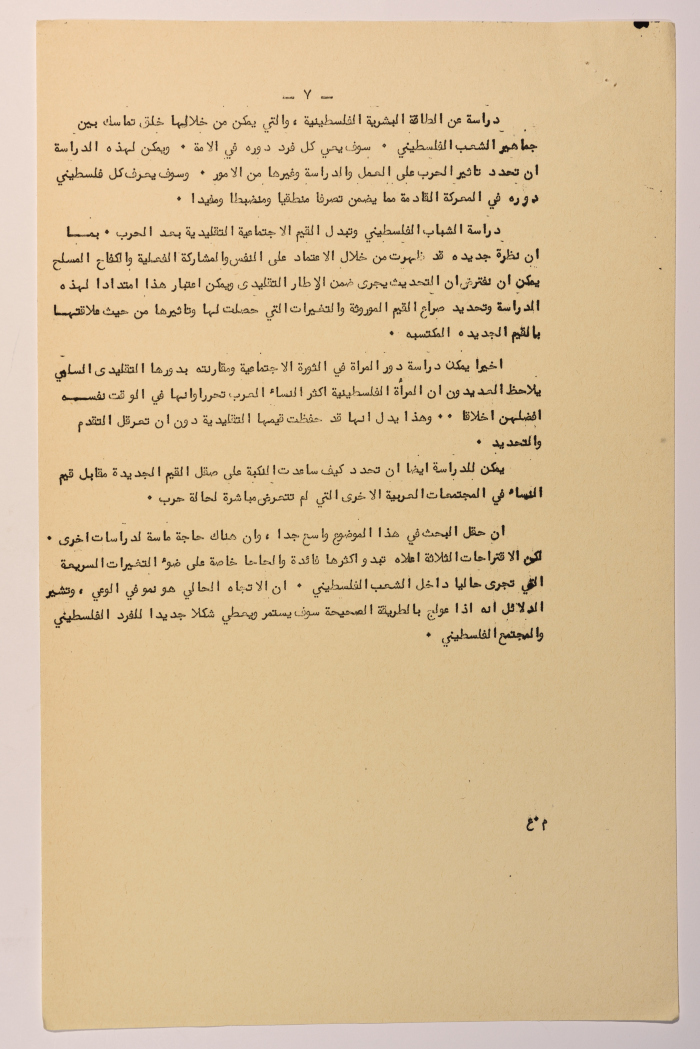 — ٧ —
دراسة عن الطاقة البشرية الفلسطينية ، والتي يمكن من خلالها خلق تماسك بين
جماهير الشعب الفلسطيني ٠ سوف يعي كل فرد دوره في الامة ٠ ويمكن لهذه الدراسة
ان تحدد تاثير الحرب على العمل والدراسة وغيرها من الامور ٠ وسوف يعرف كل فلسطيني
دوره في المعركة القادمة مما يضمن تصرفا منطقيا ومنضبطا ومفيدا ٠
دراسة الشباب الفلسطيني وتبدل القيم الاجتماعية التقليدية بعد الحرب ٠ بمــا
ان نظرة جديده قد ظهرت من خلال الاعتماد على النفس والمشاركة الفعلية والكفاح المسلح
يمكن ان نفترض ان التحديث يجرى ضمن الاطار التقليدى ويمكن اعتبار هذا امتدادا لهذه
الدراسة وتحديد صراع القيم الموروثة والتغيرات التي حصلت لها وتاثيرها من حيث علاقتهــا
بالقيم الجديده المكتسبه ٠
اخيرا يمكن دراسة دور المراة في الثورة الاجتماعية ومقارنته بدورها التقليدى السلبي
يلاحظ العديدون ان المرأة الفلسطينية اكثر النساء العرب تحررا وانها في الوقت نفســـه
افضلهن اخلاقا ٠٠ وهذا يدل انها قد حفظت قيمها التقليدية دون ان تعرقل التقدم
والتحديد ٠
يمكن للدراسة ايضا ان تحدد كيف ساعدت النكبة على صقل القيم الجديدة مقابل قيم
النساء في المجتمعات العربية الاخرى التي لم تتعرض مباشرة لحالة حرب ٠
ان حقل البحث في هذا الموضوع واسع جدا ، وان هناك حاجة ماسة لدراسات اخرى ٠
لكن الاقتراحات الثلاثة اعلاه تبدو اكثرها فائدة والحاحا خاصة على ضوء التغيرات السريعة
التي تجرى حاليا داخل الشعب الفلسطيني ٠ ان الاتجاه الحالي هو نمو في الوعي ، وتشير
الدلائل انه اذا عولج بالطريقة الصحيحة سوف يستمر ويعطي شكلا جديدا للفرد الفلسطيني
والمجتمع الفلسطيني ٠
م٠ع